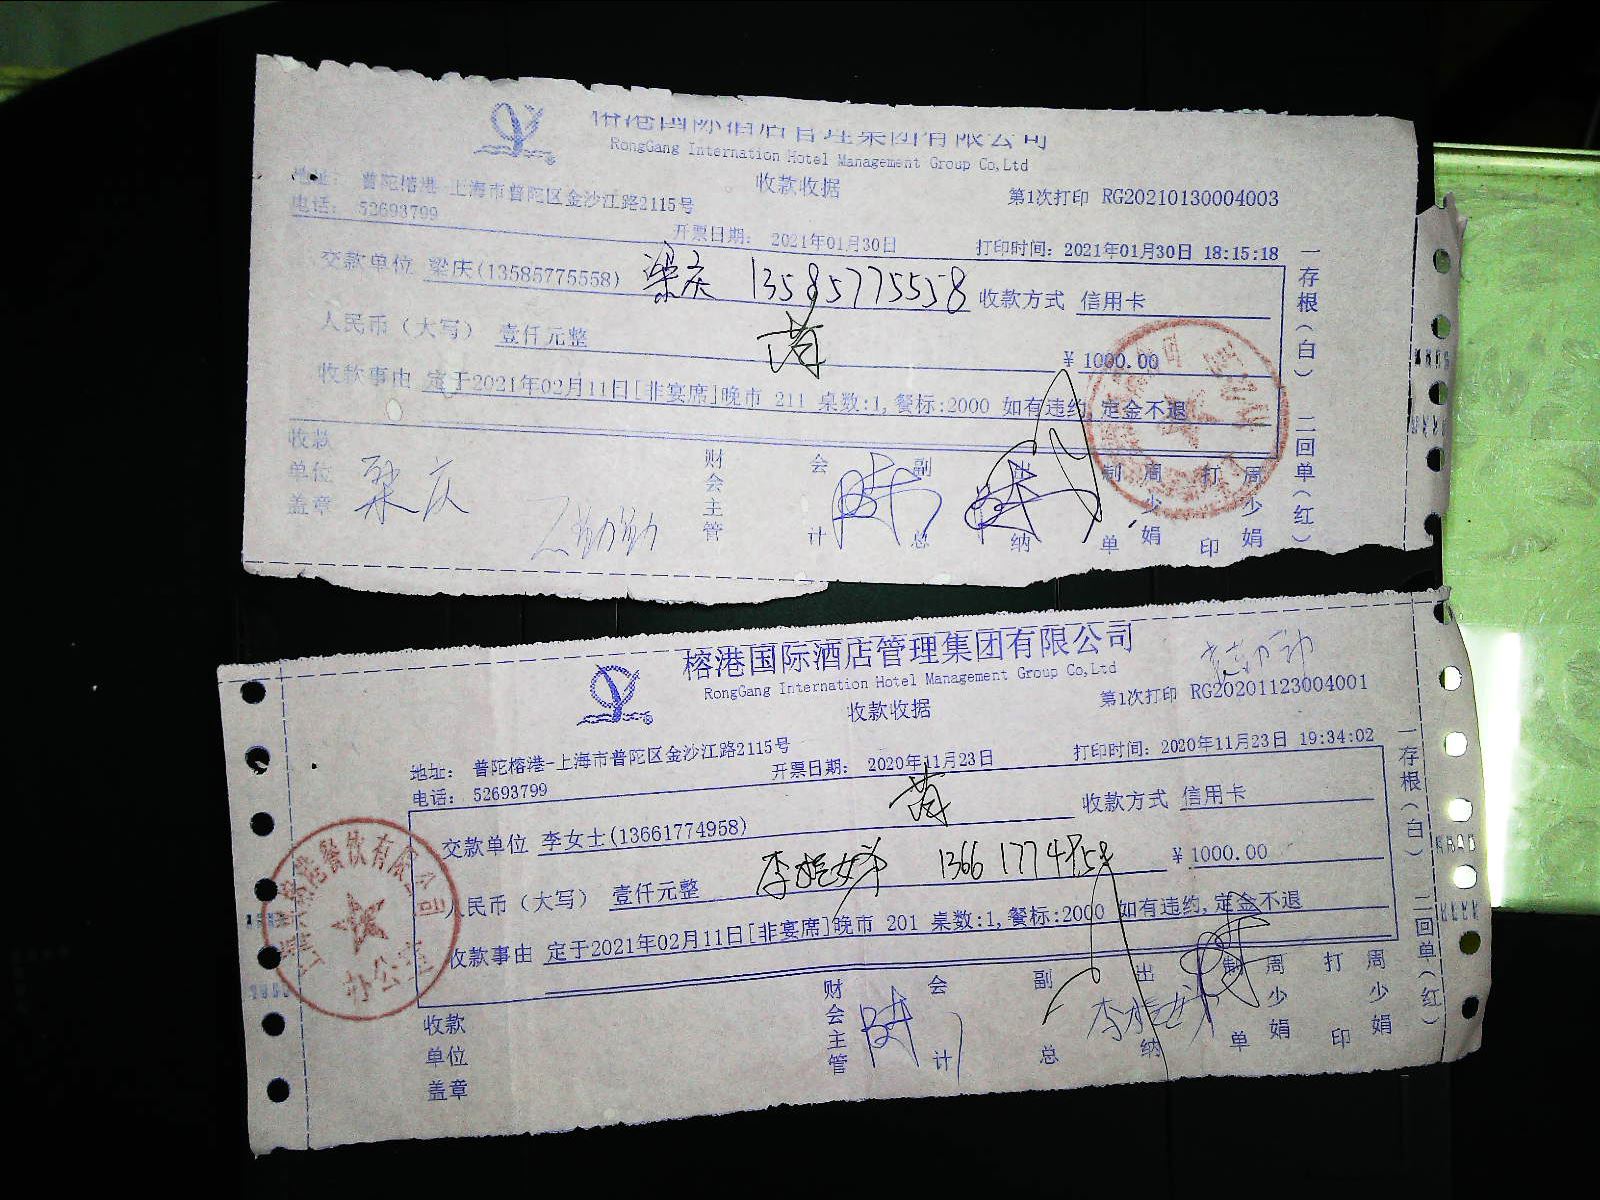 榕港国际酒店管理集团有限公司
RongGang Internation Hotel Management Group Co,Ltd
收款收据
第1次打印 RG20210130004003
地址： 普陀榕港-上海市普陀区金沙江路2115号
电话： 52693799
开票日期： 2021年01月30日 打印时间：2021年01月30日 18:15:18
交款单位 梁庆(13585775558) 梁庆 13585775558 收款方式 信用卡
人民币（大写） 壹仟元整 ￥1000.00
收款事由 定于2021年02月11日[非宴席]晚市 211 桌数:1,餐标:2000 如有违约,定金不退
收款单位盖章 梁庆 财会主管 会计 副总 出纳 制单 周少娟 打印 周少娟
一存根(白) 二回单(红)
榕港国际酒店管理集团有限公司
RongGang Internation Hotel Management Group Co,Ltd
收款收据
第1次打印 RG20201123004001
地址： 普陀榕港-上海市普陀区金沙江路2115号
电话： 52693799
开票日期： 2020年11月23日 打印时间：2020年11月23日 19:34:02
交款单位 李女士(13661774958) 收款方式 信用卡
人民币（大写） 壹仟元整 13661774958 ￥1000.00
收款事由 定于2021年02月11日[非宴席]晚市 201 桌数:1,餐标:2000 如有违约,定金不退
收款单位盖章 财会主管 会计 副总 出纳 制单 周少娟 打印 周少娟
一存根(白) 二回单(红)
榕港餐饮有限公司
办公室